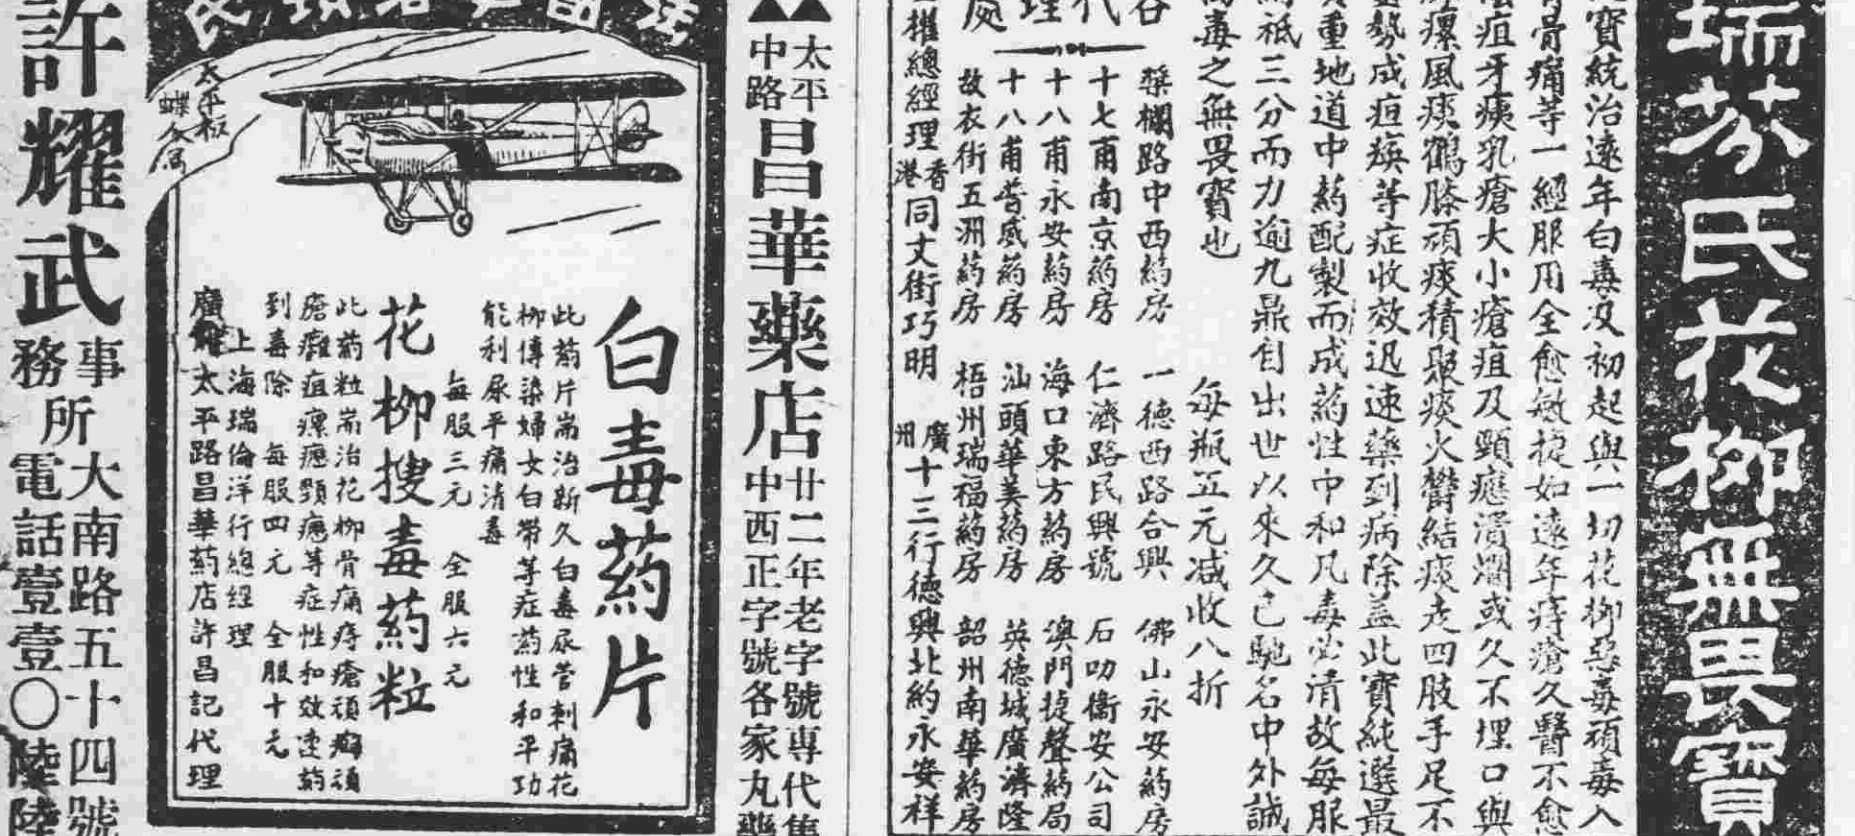 瑞芬氏花柳無畏寶
寶統治遠年白毒及初起與一切花柳惡毒頑毒入
骨痛等一經服用全愈敏捷如遠年痔瘡久醫不愈
疽牙痍乳瘡大小瘡疽及頸癧潰爛或久不埋口與
瘰風痰鶴膝頑痰積聚痰火欝結痰走四肢手足不
勢成疸瘼等症收效迅速藥到病除盖此寶純選最
重地道中葯配製而成葯性中和凡毒必清故每服
祗三分而力逾九鼎自出世以來久已馳名中外誠
毒之無畏寶也
每瓶五元减收八折
代理處
槳欄路中西葯房 一德西路合興 佛山永安葯房
十七甫南京葯房 仁濟路民興號 石叻衞安公司
十八甫永安葯房 海口東方葯房 澳門捷聲葯局
十八甫普威葯房 汕頭華美葯房 英德城廣濟隆
故衣街五洲葯房 梧州瑞福葯房 韶州南華葯房
權總經理香港同文街巧明 廣州十三行德興北約永安祥
太平中路昌華藥店廿二年老字號專代售
中西正字號各家丸藥
太平板
白毒葯片
此葯片耑治新久白毒尿管刺痛花
柳傳染婦女白帶等症葯性和平功
能利尿平痛清毒
每服三元 全服六元
花柳搜毒葯粒
此葯粒耑治花柳骨痛痔瘡頑癬頑
瘡癱疽瘰癧頸癧等症性和效速葯
到毒除 每服四元 全服十元
上海瑞倫洋行總經理
太平路昌華葯店許昌記代理
許耀武事務所大南路五十四號
電話壹壹〇陸陸